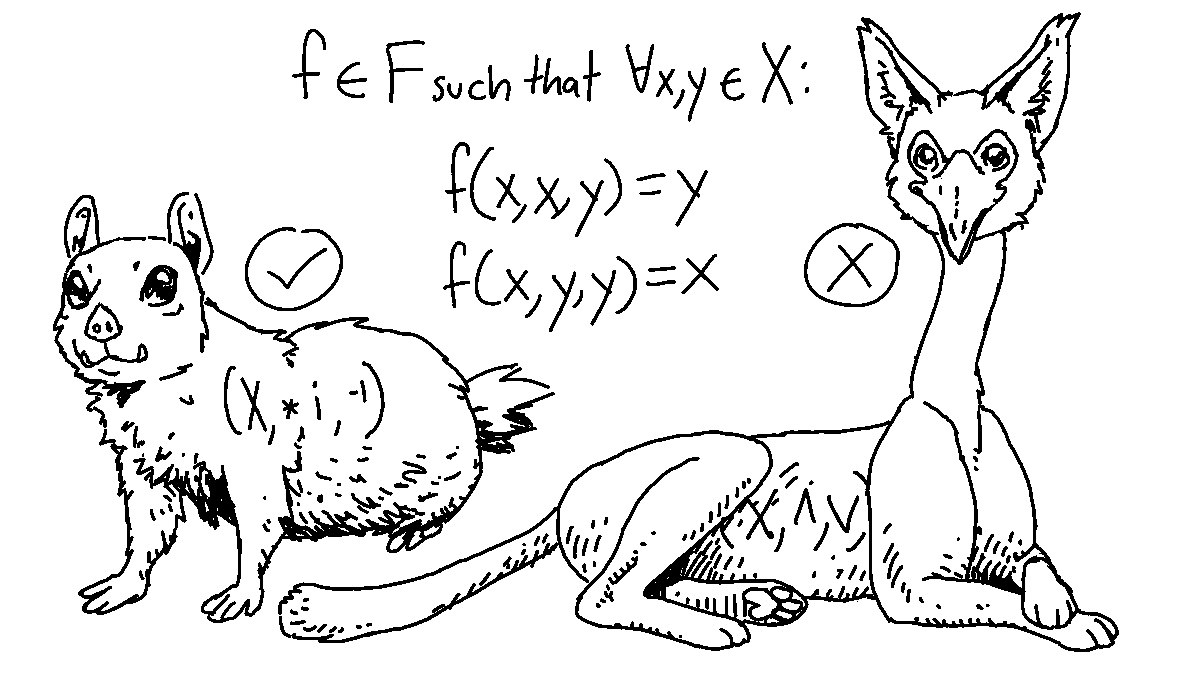 f ∈ F such that ∀x,y ∈ X:
f(x,x,y)=y
f(x,y,y)=x
(X,*,i,⁻¹)
(X,∧,∨